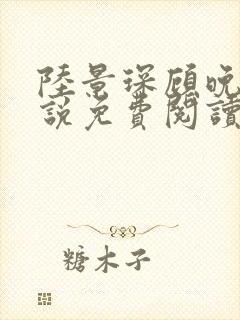 陸景琛顧晚
說免費閱讀
糖木子